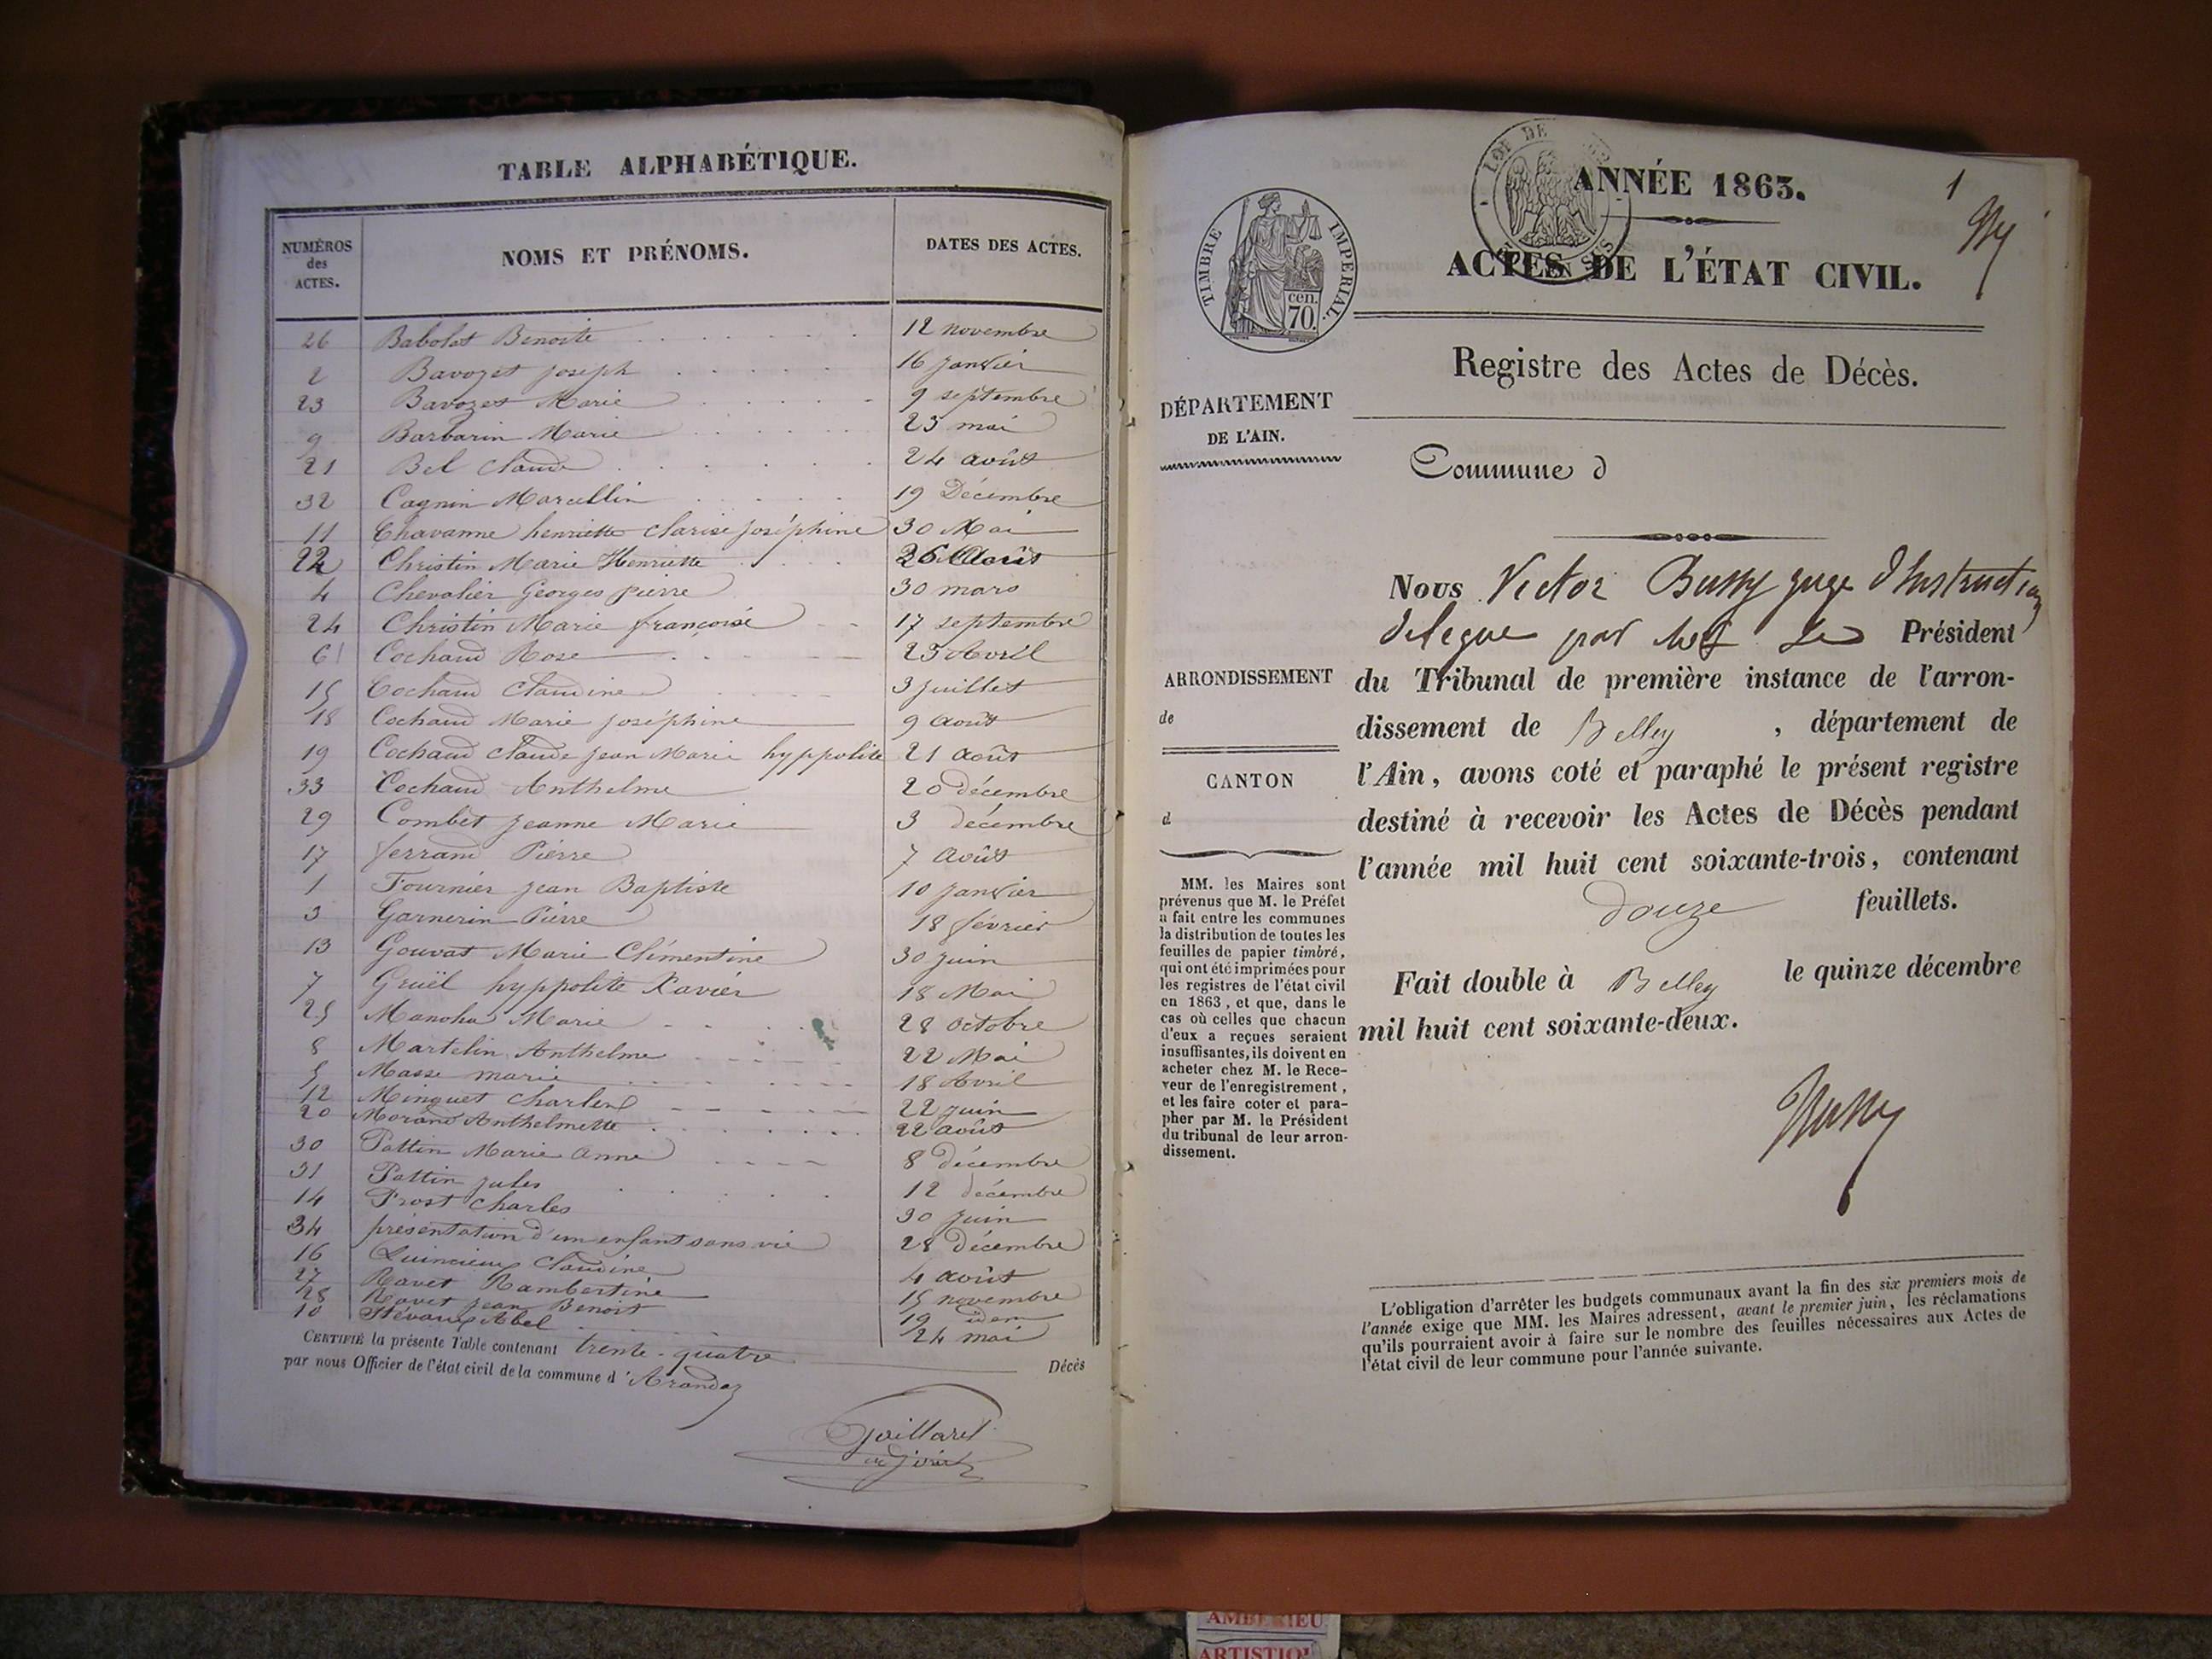 TABLE ALPHABÉTIQUE.
NUMÉROS des ACTES. NOMS ET PRÉNOMS. DATES DES ACTES.
26 Babolat Benoite 12 novembre
2 Bavozet joseph 16 janvier
23 Bavozet Marie 9 septembre
9 Barbarin Marie 23 mai
21 Bel Claude 24 août
32 Cagnin Marcellin 19 Décembre
11 Chavanne henriette clarise joséphine 30 Mai
22 Christin Marie Henriette 26 Août
4 Chevalier Georges pierre 30 mars
24 Christin Marie françoise 17 septembre
6 Cochaud Rose 23 Avril
15 Cochaud Claudine 3 juillet
18 Cochaud Marie joséphine 9 août
19 Cochaud Claude jean Marie hyppolite 21 août
33 Cochaud Anthelme 20 décembre
29 Combet jeanne Marie 3 décembre
17 ferrand Pierre 7 août
1 Fournier jean Baptiste 10 janvier
3 Garnerin Pierre 18 février
13 Gouvat Marie Clémentine 30 juin
7 Gruël hyppolite Xavier 18 Mai
25 Manoha Marie 28 octobre
8 Martelin Anthelme 22 Mai
5 Masse marie 18 Avril
12 Minguet Charles 22 juin
20 Morand Anthelmette 22 août
30 Pattin Marie anne 8 décembre
31 Pattin jules 12 décembre
14 Prost Charles 30 juin
34 présentation d'un enfant sans vie 28 Décembre
16 Claudine 4 août
27 Ravet Rambertine 15 novembre
28 Ravet jean Benoit 19 idem
10 Abel 24 mai
CERTIFIÉ la présente Table contenant trente-quatre Décès
par nous Officier de l'état civil de la commune d'Arandaz
Gaillard
adjoint
1
ANNÉE 1863.
TIMBRE IMPERIAL
70 cen.
ACTES DE L'ÉTAT CIVIL.
Registre des Actes de Décès.
DÉPARTEMENT
DE L'AIN.
Commune d
ARRONDISSEMENT
de
CANTON
d
MM. les Maires sont
prévenus que M. le Préfet
a fait entre les communes
la distribution de toutes les
feuilles de papier timbré,
qui ont été imprimées pour
les registres de l'état civil
en 1863, et que, dans le
cas où celles que chacun
d'eux a reçues seraient
insuffisantes, ils doivent en
acheter chez M. le Rece-
veur de l'enregistrement,
et les faire coter et para-
pher par M. le Président
du tribunal de leur arron-
dissement.
Nous Victor Bussy juge d'Instruction
délégué par Président
du Tribunal de première instance de l'arron-
dissement de Belley, département de
l'Ain, avons coté et paraphé le présent registre
destiné à recevoir les Actes de Décès pendant
l'année mil huit cent soixante-trois, contenant
douze feuillets.
Fait double à Belley le quinze décembre
mil huit cent soixante-deux.
Bussy
L'obligation d'arrêter les budgets communaux avant la fin des six premiers mois de
l'année exige que MM. les Maires adressent, avant le premier juin, les réclamations
qu'ils pourraient avoir à faire sur le nombre des feuilles nécessaires aux Actes de
l'état civil de leur commune pour l'année suivante.
AMBERIEU
ARTISTIQ